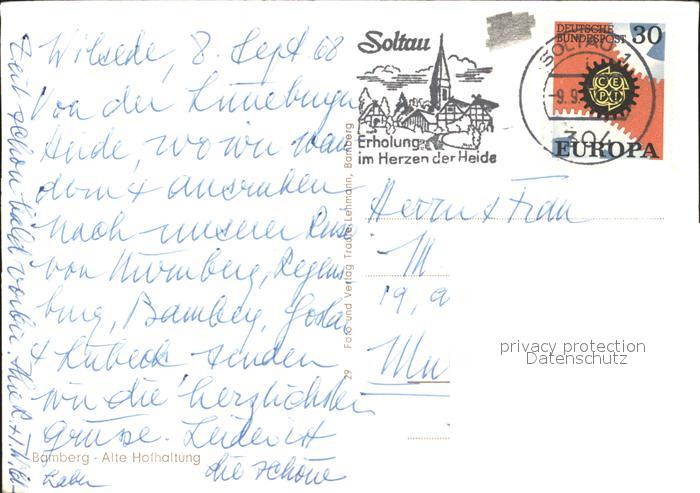 Wilsede, 8. Sept 68
Von der Lüneburger
Heide, wo wir wan
dern + ausruhen
nach unserer Reise
von Nürnberg, Regens
burg, Bamberg, Goslar
+ Lübeck senden
wir die herzlichsten
Grüsse. Leider ist
die schöne
Zeit schon bald vorbei.
Bamberg - Alte Hofhaltung
29 Foto und Verlag Lehmann, Bamberg
Soltau
Erholung
im Herzen der Heide
SOLTAU 1
-9.9.
304
DEUTSCHE
BUNDESPOST 30
CEPT
EUROPA
Herrn + Frau
M
19, a
Mü
privacy protection
Datenschutz